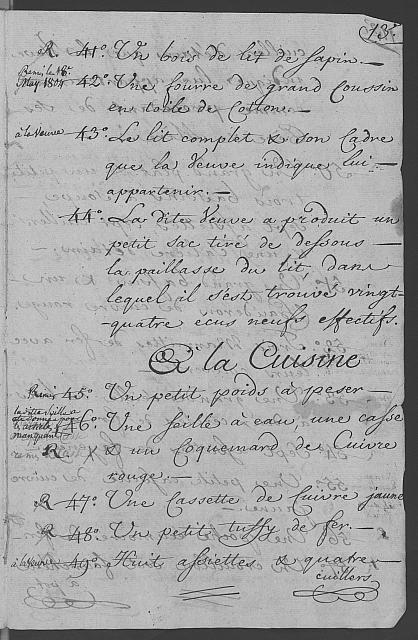 13.
R 41º Un bois de lit de sapin.—
Remis le 18.
May 1804 42º Une fourre de grand Coussin
en toile de Cotton.—
à la Veuve 43º Le lit complet & son Cadre
que la Veuve indique lui
appartenir.—
44º La dite Veuve a produit un
petit sac tiré de dessous—
la paillasse du lit, dans
lequel il s'est trouvé vingt-
quatre ecus neufs effectifs.
À la Cuisine
Remis 45º Un petit poids à peser—
la ditte seille a
46º Une seille à eau, une casse
manquant
R & un Coquemard de Cuivre
rouge.—
R 47º Une Cassette de Cuivre jaune
R 48º Un petit tuffy de fer.—
à la Veuve 49º Huit assiettes & quatre—
cuillers